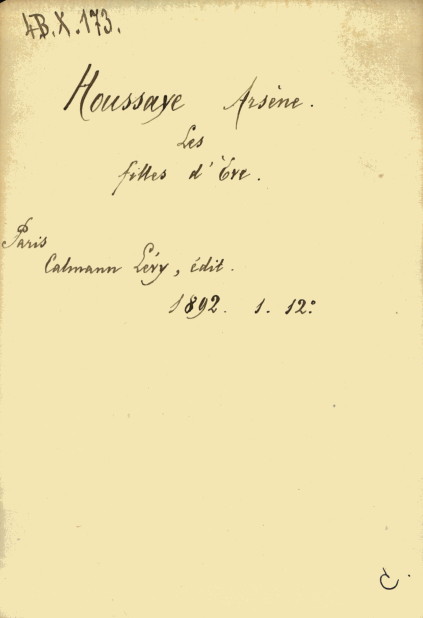 4B.X.173.
Houssaye Arsène.
Les
filles d'Ève.
Paris
Calmann Lévy, édit.
1892. 1. 12º